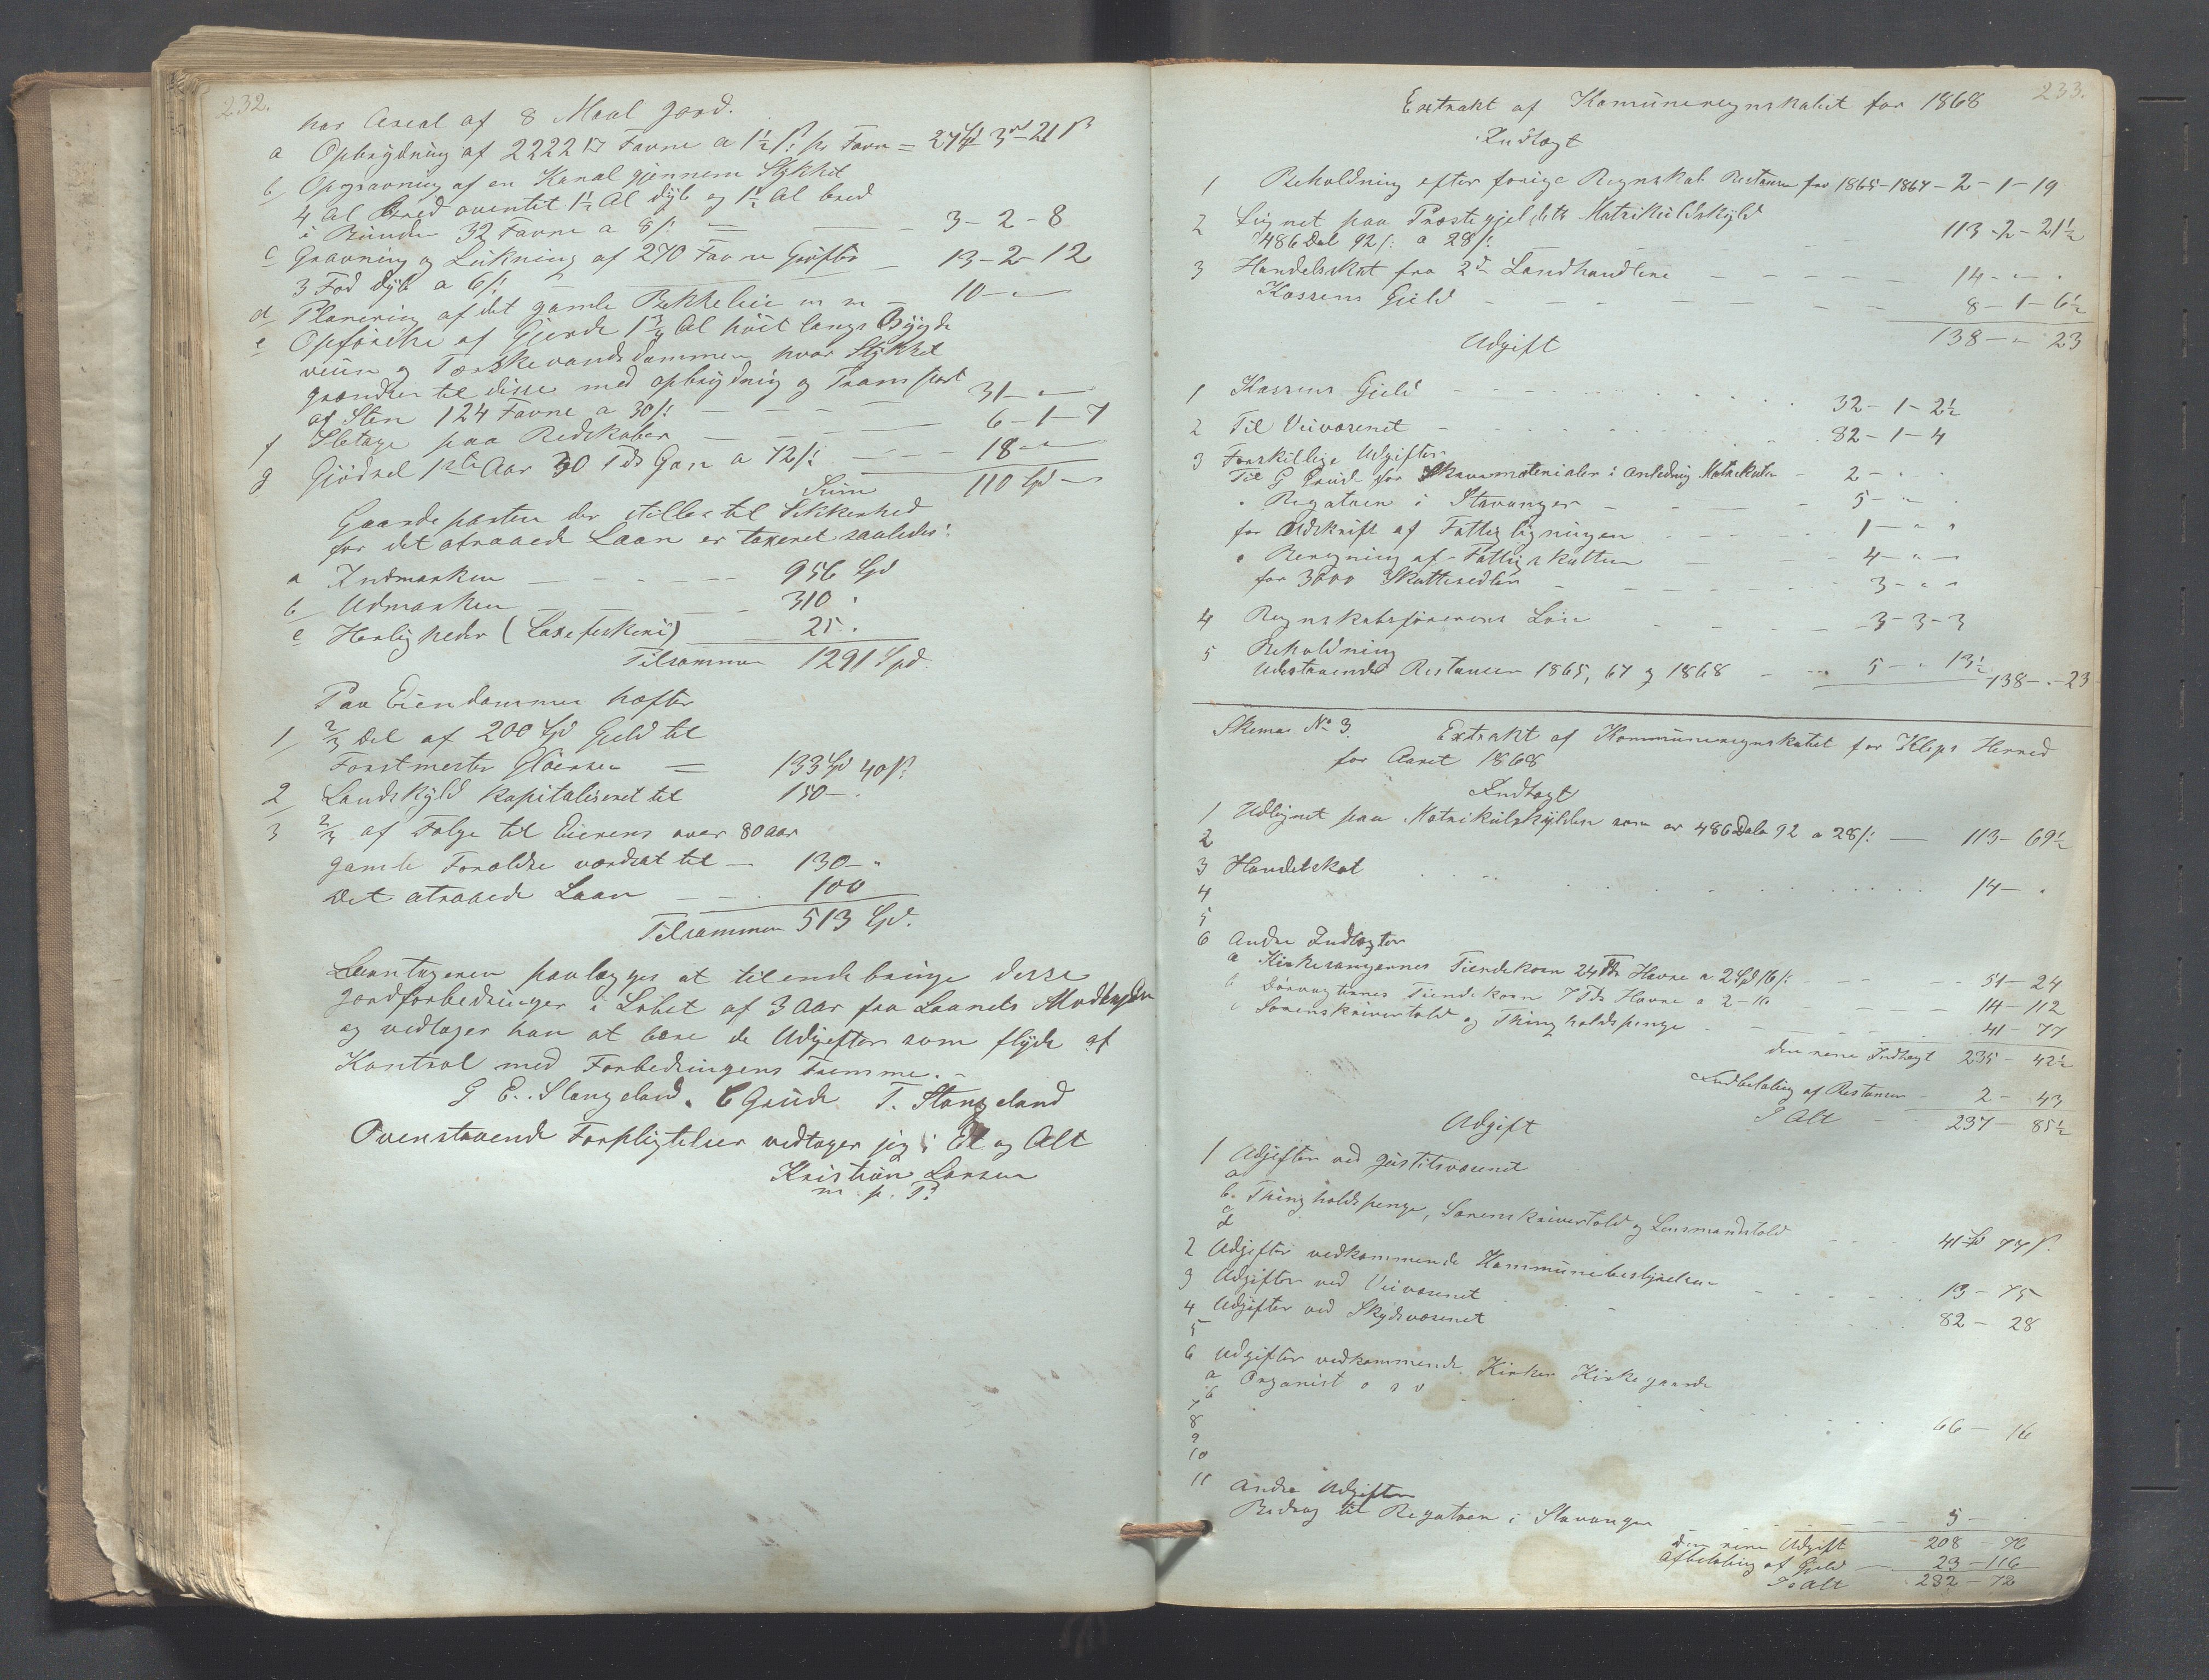 232.
har Areal af 8 Maal Jord.
a Opbrydning af 2222 □ Favne a 1½ s: pr Favn = 27 Spd 3 - 21 s
b Opgravning af en Kanal gjennem Stykket
4 Al Bred oventil 1½ Al dyb og 1½ Al bred
i Bunden 32 Favne a 8 s: = 3 - 2 - 8
c Gravning og Lukning af 270 Favne Grøfter
3 Fod dyb a 6 s: 13 - 2 - 12
d Planering af det gamle Bekkeleie m m 10 - " -
e Opførelse af Gjerde 1¾ Al høit langs Bygde
veien og Tærskevandsdammen hvor Stykket
grændser til disse med opbrydning og Transport
af Sten 124 Favne a 30 s: 31 - " -
f Sletage paa Redskaber 6 - 1 - 7
g Gjødsel 1ste Aar 30 Gan a 72 s: 18 - " -
Sum 110 Spd -
Gaardeparten der stilles til Sikkerhed
for det atraaede Laan er taxeret saaledes:
a Indmarken 956 Spd
b Udmarken 310 "
c Herligheder (Laxefiskeri) 25 "
Tilsammen 1291 Spd.
Paa Eiendommen hæfter
1/ ⅔ Del af 200 Spd Gjeld til
Forstmester Gløersen = 133 Spd 40 s:
2/ Landskyld kapitaliseret til 150 - "
3 ⅔ af Folge til Eierens over 80 Aar
gamle Foreldre værdsat til - 130 - "
Det atraaede Laan 100
Tilsammen 513 Spd.
Laantageren paalægges at tilendebringe desse
Jordforbedringer i Løbet af 3 Aar fra Laanets Modtagelse
og vedtager han at bære de Udgifter som flyde af
Kontrol med Forbedringens Fremme. -
G E. Stangeland. C Grude T. Stangeland
Ovenstaaende Forpligtelser vedtager jeg i Et og Alt
Kristian Larsen
m. p. P.
233.
Extrakt af Komuneregnskabet for 1868
Indtægt
1 Beholdning efter forige Regnskab Restancer for 1865-1867 - 2 - 1 - 19
2 Lignet paa Præstegjeldets Matrikulskyld
486 Dal 92 s: a 28 s: 113 - 2 - 21½
3 Handelskat fra 2de Landhandlere 14 - " -
Kassens Gjeld 8 - 1 - 6½
138 - " - 23
Udgift
1 Kassens Gjeld 32 - 1 - 2½
2 Til Veivæsenet 82 - 1 - 4
3 Forskillige Udgifter
Til G Grude for Skrivematerialer i Anledning Matrikulen 2 - "
" Regataen i Stavanger 5 - "
for Udskrift af Fattigligningen 1 - " "
" Beregning af Fattigskatten 4 - " -
for 3000 Skattesedler 3 - " -
4 Regnskabsførerens Løn 3 - 3 - 3
5 Beholdning
Udestaaende Restancer 1865, 67 og 1868 5 - " 13½ 138 - " - 23
Skema No 3. Extrakt af Kommuneregnskabet for Kleps Herred
for Aaret 1868
Indtægt
1 Udlignet paa Matrikulskylden som er 486 Dale 92 a 28 s: - 113 - 69½
2
3 Handelskat 14 - "
4
5
6 Andre Indtægter
a Kirkesangernes Tiendekorn 24 Tdr Havre a 2 Spd 16 s: 51 - 24
b Dørvogternes Tiendekorn 7 Tdr Havre a 2 - 16 14 - 112
c Sorenskrivertold og Thingholdspenge 41 - 77
den rene Indtægt 235 - 42½
Indbetaling af Restancer - 2 - 43
I Alt - 237 - 85½
Udgift
1 Udgifter ved Justitsvæsenet
a
b. Thingholdspenge, Sorenskrivertold og Lensmandstold 41 Spd 77 s:
c
d
2 Udgifter vedkommende Kommunebestyrelsen 13 - 75
3 Udgifter ved Veivæsenet 82 - 28
4 Udgifter ved Skydsvæsenet
5
6 Udgifter vedkommende Kirker Kirkegaarde
a Organist o s v 66 - 16
b
7
8
9
10
11 Andre Udgifter
Bidrag til Regataen i Stavanger 5 - "
den rene Udgift 208 - 76
Afbetaling af Gjeld 23 - 116
I Alt 232 - 72